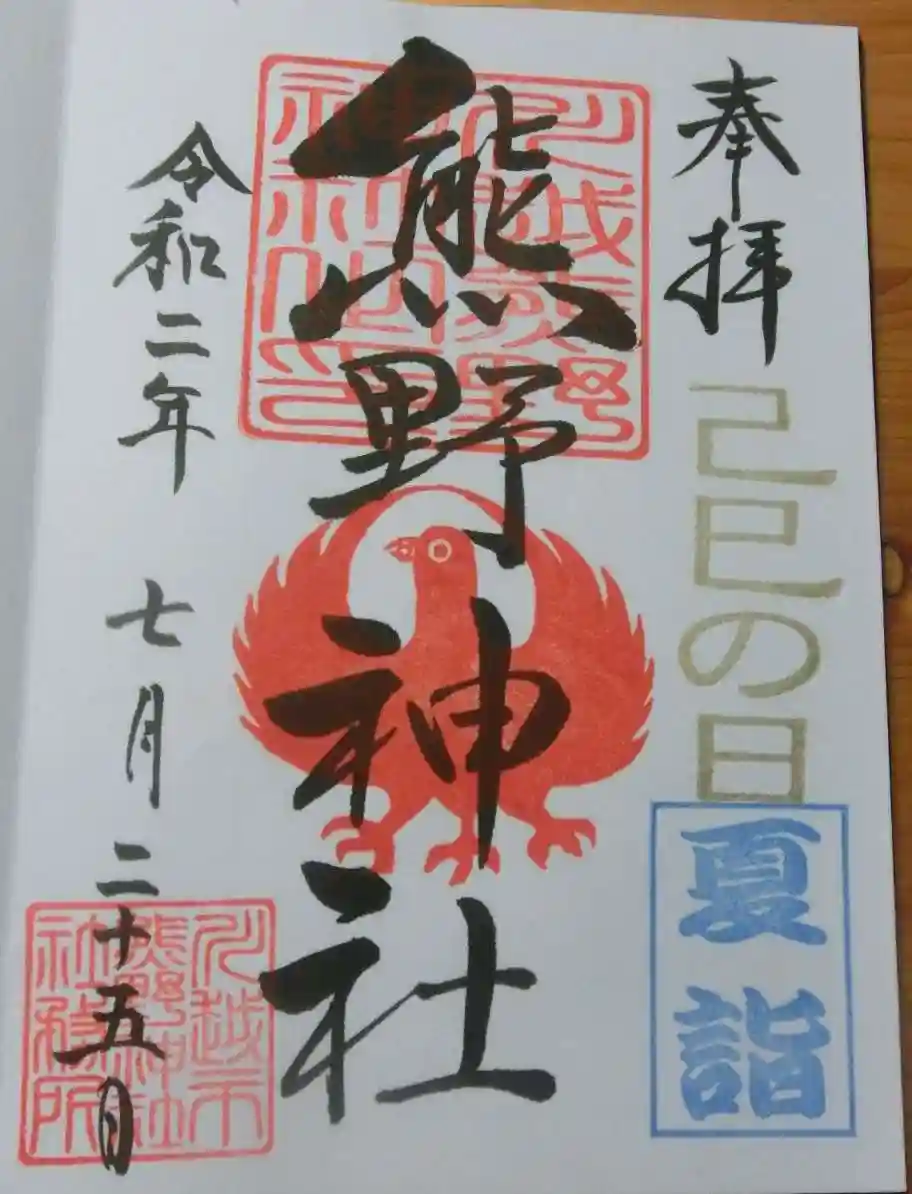 奉拝
己巳の日
夏詣
熊野神社
川越熊野
神社之印
令和二年 七月二十五日
川越市
熊野神社
社務所